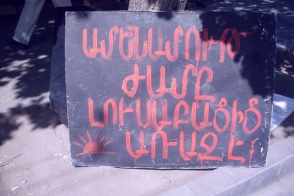 ԱՄԵՆԱՄՈՒԹ
ԺԱՄԸ
ԼՈՒՍԱԲԱՑԻՑ
ԱՌԱՋ Է